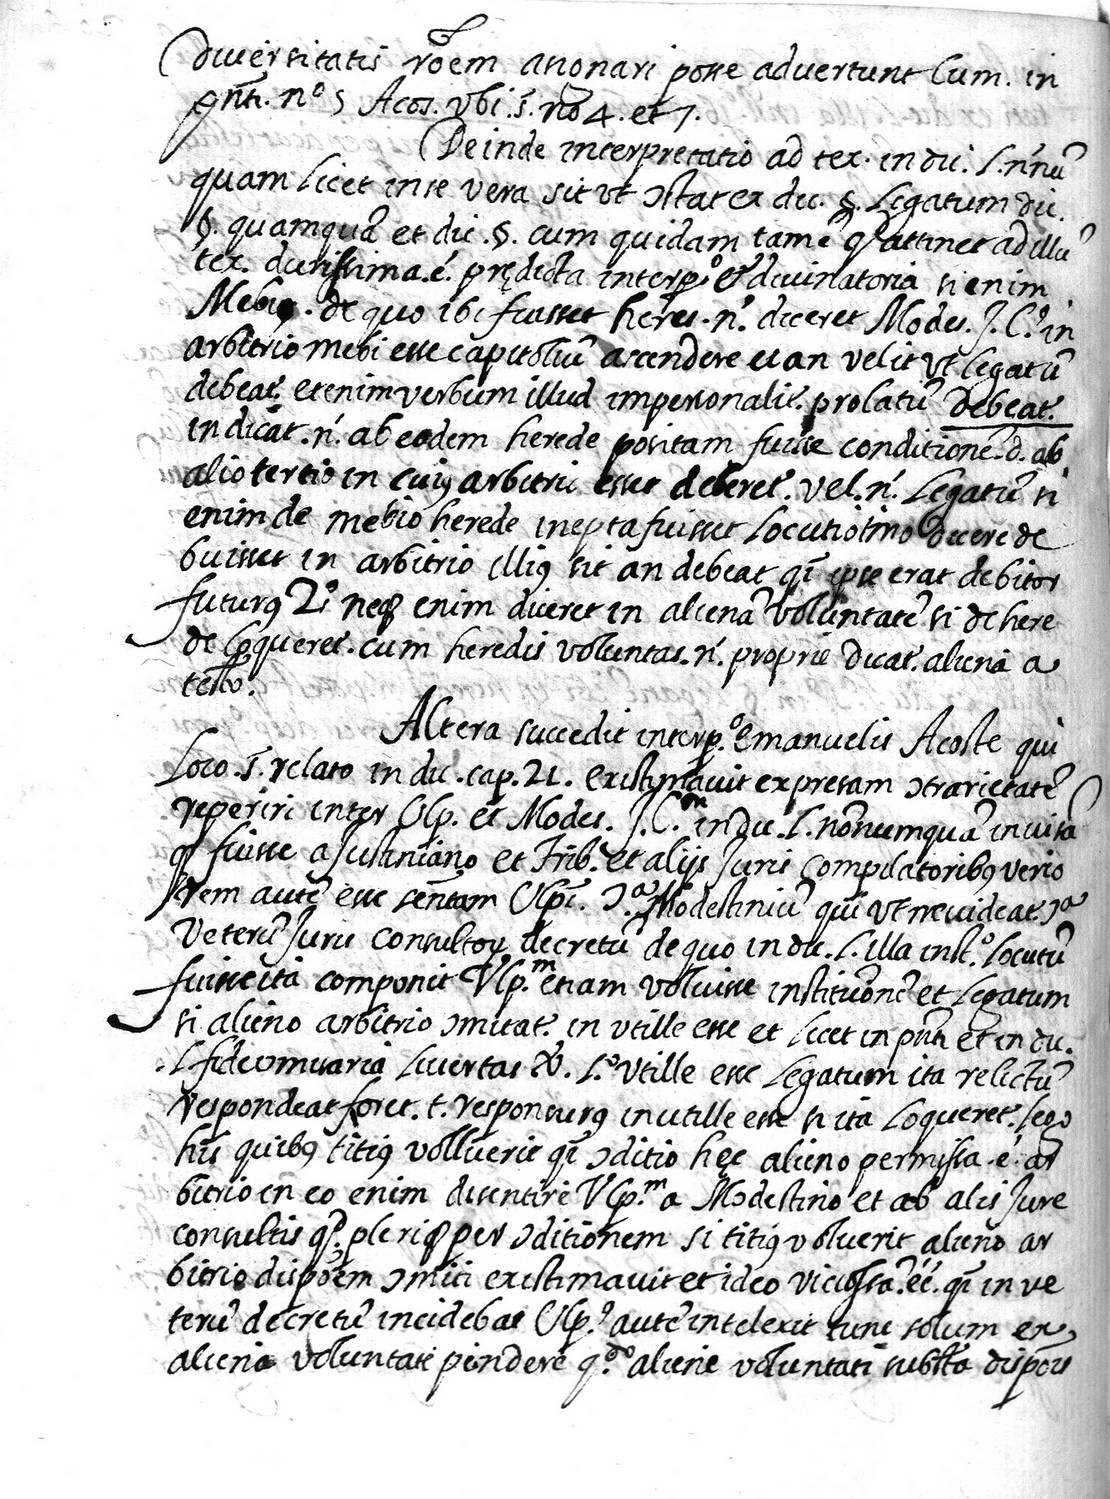 diversitatis rōem asignari posse advertunt Cum. in
pn̄ti. nº 5 Acos. vbi. s̄. no 4. et 7.
Deinde interpretatio ad tex. in dic. L. nōnū
quam licet in se vera sit vt ɔstat ex dic. §. Legatum dic.
§. quamquā et dic. §. cum quidam tamē q̄ attinet ad illū
tex. durissima. ē. prędicta interp.º et divinatoria si enim
Mebiꝰ. de quo ibi fuisset heres. n̄. diceret Modes. J. C.º in
arbitrio mebi esse capitoliū ascendere et an velit vt legatū
debeat. etenim verbum illud impersonalit. prolatū debeat.
indicat. n̄. ab eodem herede positam fuisse conditionē. d. ab
alio tertio in cuiꝰ arbitrio esset deberet. vel. n̄. Legatū si
enim de mebio herede inepta fuisset Locutio imo dicere de
buisset in arbitrio illiꝰ sit an debeat qī ipse erat debitor
futurꝰ 2.º neq̄ enim diceret in alienā voluntatē si de here
de loqueret. cum heredis voluntas. n̄. proprie dicat. aliena a
testo.
Altera succedit interp.º emanuelis Acoste qui
Loco. s̄. relato in dic. cap. 21. existimavit expresam ɔtrarietatē
reperiri inter Vlp. et Modes. J. C.m in dic. L. nōnumquā in vita
q̄ fuisse a Justiniano et Trib. et alijs Juris compilatoribꝰ verio
rem autē esse sēntam Vlpi. ɔ.ª Modestiniū qui vt ne videat. ɔª
Veterū Juris consultoꝝ decretū de quo in dic. L. illa inst.º Locutū
fuisse ita componit Vlp.m etiam voluisse institūonē et Legatum
si alieno arbitrio ɔmitat. in vtille esse et licet in pn̄ti et in dic.
L. fideicomisaria livertas &. L.º vtille esse Legatum ita relictū
respondeat foret. t. responsurꝰ inutille esse si ita loqueret. lego
his quibꝰ titiꝰ volluerit qī ɔditio hęc alieno permissa. ē. ar
bitrio in eo enim disentire Vlp.m a Modestino et ab alis Jure
consultis q̄. pleriq̄ per ɔditionem si titiꝰ voluerit alieno ar
bitrio dispōem ɔmiti existimavit et ideo viciossa. eē. qī in ve
terū decretū incidebat Vlp.º autē intelexit tunc solum ex
aliena voluntate pendere q.do aliene voluntati subst̄a dispōis